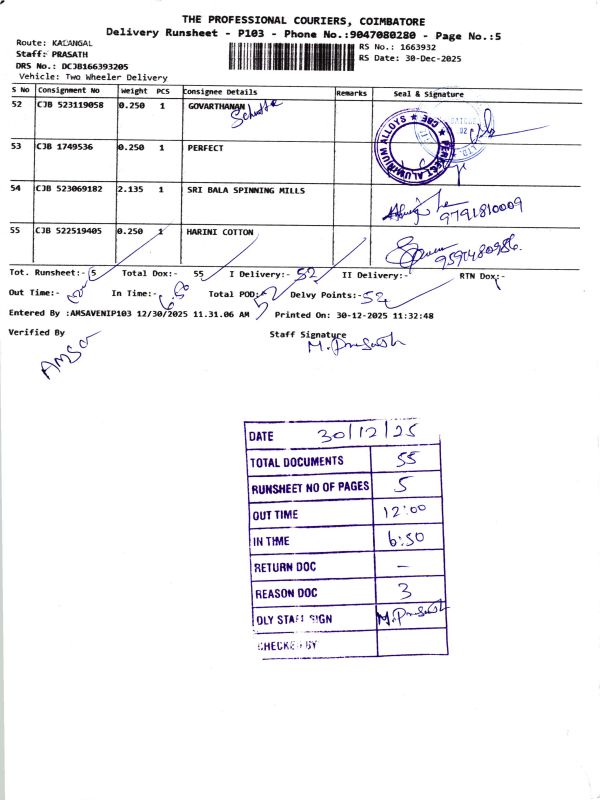 THE PROFESSIONAL COURIERS, COIMBATORE
Delivery Runsheet - P103 - Phone No.:9047080280 - Page No.:5
Route: KALANGAL
RS No.: 1663932
Staff: PRASATH
RS Date: 30-Dec-2025
DRS No.: DCJB166393205
Vehicle: Two Wheeler Delivery
S No Consignment No Weight PCS Consignee Details Remarks Seal & Signature
52 CJB 523119058 0.250 1 GOVARTHANAN
53 CJB 1749536 0.250 1 PERFECT
PERFECT ALUMINIUM ALLOYS * CBE *
54 CJB 523069182 2.135 1 SRI BALA SPINNING MILLS
9791810009
55 CJB 522519405 0.250 1 HARINI COTTON
9591480986.
Tot. Runsheet:- 5 Total Dox:- 55 I Delivery:- 52 II Delivery:- RTN Dox:-
Out Time:- In Time:- 6:50 Total POD:- 52 Delvy Points:- 52
Entered By :AMSAVENIP103 12/30/2025 11.31.06 AM Printed On: 30-12-2025 11:32:48
Verified By Staff Signature
M. Prasath
DATE 30/12/25
TOTAL DOCUMENTS 55
RUNSHEET NO OF PAGES 5
OUT TIME 12:00
IN TIME 6:50
RETURN DOC -
REASON DOC 3
DLY STAFF SIGN M. Prasath
CHECKED BY